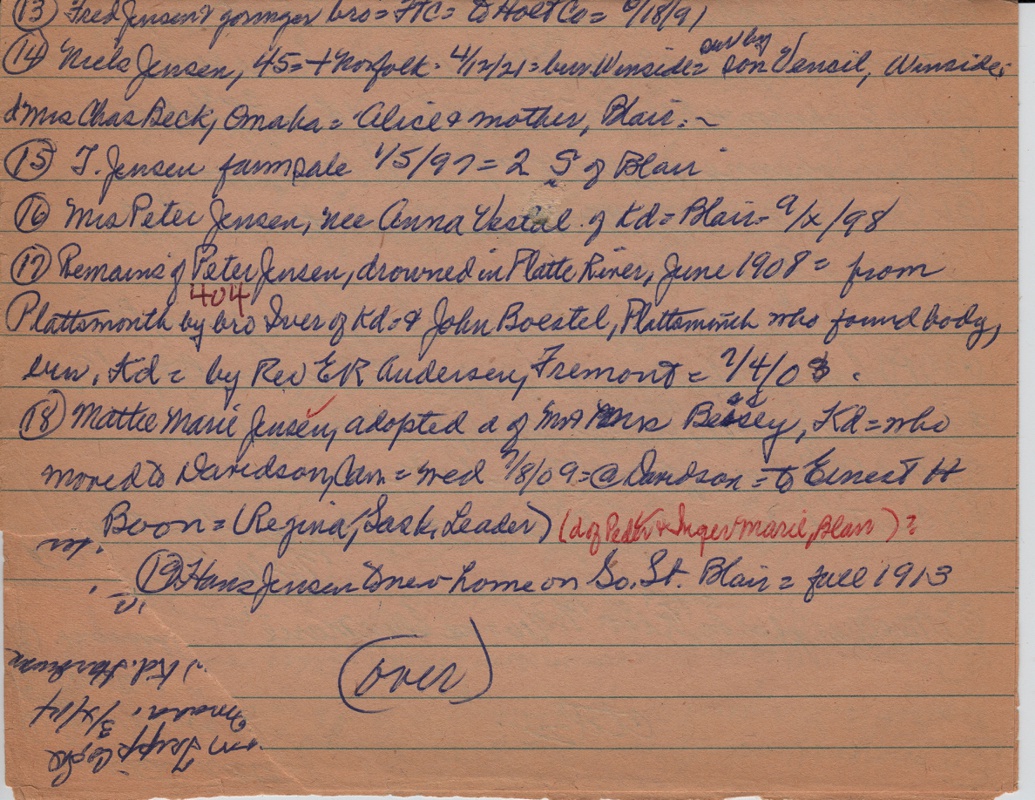 (13) Fred Jensen & younger bro = FtC = to Holt Co = 9/18/91
(14) Niels Jensen, 45 = + Norfolk = 4/12/21 = bur Winside = surv by son Vencil, Winside;
d Mrs Chas Beck, Omaha = Alice & mother, Blair. ~
(15) T. Jensen farm sale 1/5/97 = 2 S of Blair
(16) Mrs Peter Jensen, nee Anna Vestal of Kd = Blair = 9/x/98
(17) Remains of Peter Jensen, drowned in Platte River, June 1908 = from
404
Plattsmouth by bro Iver of Kd = & John Boestel, Plattsmouth who found body,
bur, Kd = by Rev ER Andersen, Fremont = 7/4/08.
(18) Mattie Marie Jensen, adopted d of Mr & Mrs Bessey, Kd = who
moved to Davidson, Can. = wed 9/8/09 = @ Davidson = to Ernest H
Boon = (Regina, Sask, Leader) (d of Peder & Inger Marie, Blair) =
(19) Hans Jensen to new home on So. St. Blair = fall 1913
(over)
Kd.
Omaha. 3/x/14
Tripp Co, SD